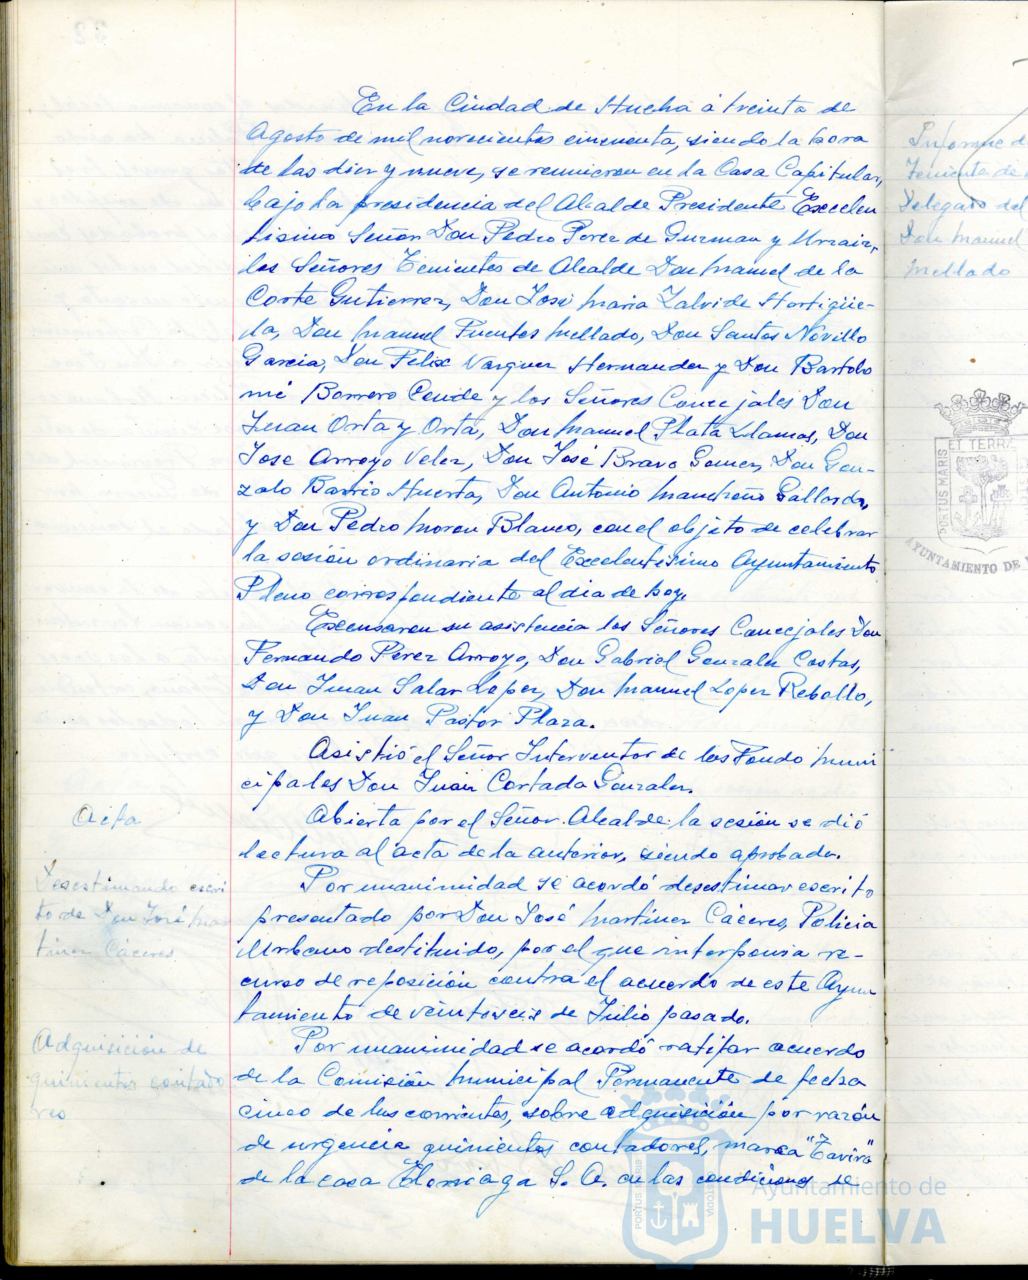 En la Ciudad de Huelva á treinta de
Agosto de mil novecientos cincuenta, siendo la hora
de las diez y nueve, se reunieron en la Casa Capitular,
bajo la presidencia del Alcalde Presidente Excelen
tisimo Señor Don Pedro Perez de Guzman y Urzaiz,
los Señores Tenientes de Alcalde Don Manuel de la
Corte Gutierrez, Don José Maria Zalvide Hortigüe-
la, Don Manuel Fuentes Mellado, Don Santos Novillo
Garcia, Don Felix Vazquez Hernandez y Don Bartolo
mé Borrero Conde y los Señores Concejales Don
Juan Orta y Orta, Don Manuel Plata Llamas, Don
Jose Arroyo Velez, Don José Bravo Gomez, Don Gon-
zalo Barrio Huerta, Don Antonio Mancheño Gallardo,
y Don Pedro Moron Blanco, con el objeto de celebrar
la sesión ordinaria del Excelentisimo Ayuntamiento
Pleno correspondiente al dia de hoy.
Excusaron su asistencia los Señores Concejales Don
Fernando Pérez Arroyo, Don Gabriel Gonzalez Costas,
Don Juan Salas Lopez, Don Manuel Lopez Rebollo,
y Don Juan Pastor Plaza.
Asistió el Señor Interventor de los Fondo Muni
cipales Don Juan Cortada Gonzalez.
Acta
Abierta por el Señor Alcalde la sesión se dió
lectura al acta de la anterior, siendo aprobada.
Desestimando escri
to de Don José Mar
tinez Cáceres
Por unanimidad se acordó desestimar escrito
presentado por Don José Martinez Cáceres, Policia
Urbano destituido, por el que interponia re-
curso de reposición contra el acuerdo de este Ayun
tamiento de veintiseis de Julio pasado.
Adquisición de
quinientos contado
res
Por unanimidad se acordó ratifar acuerdo
de la Comisión Municipal Permanente de fecha
cinco de los corrientes, sobre adquisición por razón
de urgencia quinientos contadores, marca "Tavira"
de la casa S. A. en las condiciones se
Informe d
Teniente de
Delegado del
Don Manuel
Mellado
PORTUS MARIS ET TERRÆ
AYUNTAMIENTO DE
Ayuntamiento de
HUELVA